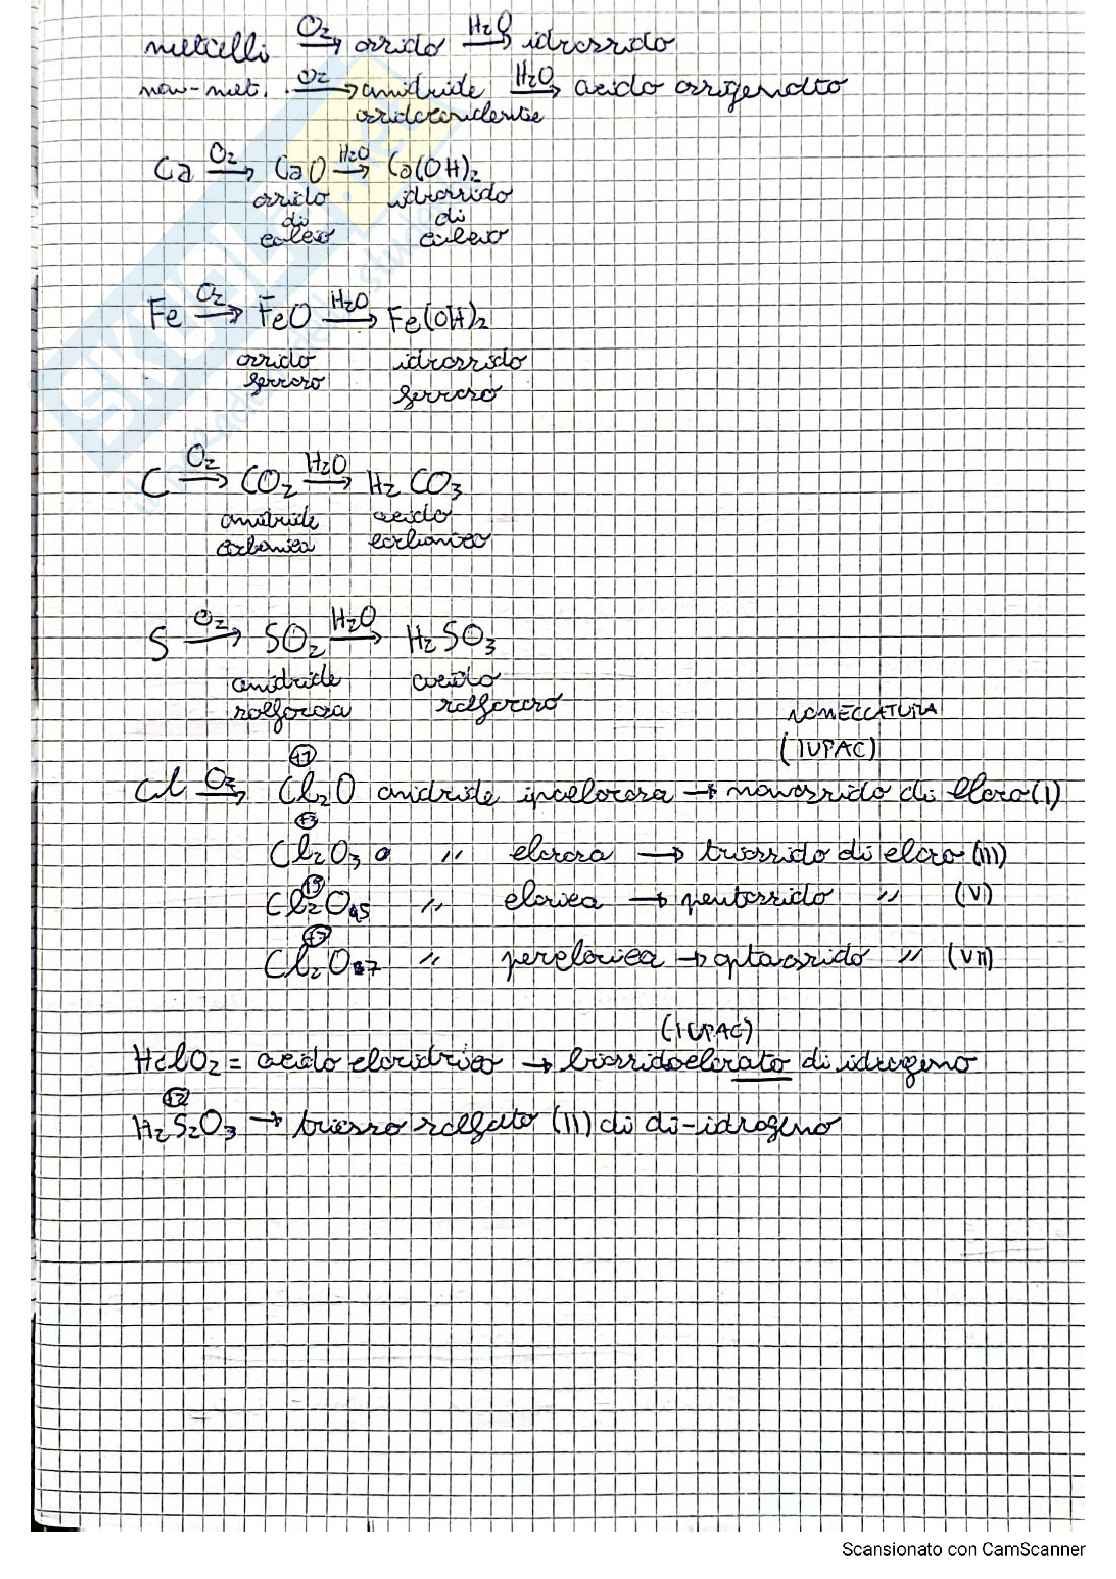 metalli O₂→ ossido H₂O→ idrossido
non-met. O₂→ anidride H₂O→ acido ossigenato
ossidoacidente
Ca O₂→ CaO H₂O→ Ca(OH)₂
ossido idrossido
di di
calcio calcio
Fe O₂→ FeO H₂O→ Fe(OH)₂
ossido idrossido
ferroso ferroso
C O₂→ CO₂ H₂O→ H₂CO₃
anidride acido
carbonica carbonico
S O₂→ SO₂ H₂O→ H₂SO₃
anidride acido
solforosa solforoso
NOMECCATURA
(IUPAC)
+1
Cl O₂→ Cl₂O anidride ipoclorosa → monossido di cloro (I)
+3
Cl₂O₃ " clorosa → triossido di cloro (III)
+5
Cl₂O₅ " clorica → pentossido " (V)
+7
Cl₂O₇ " perclorica → optaossido " (VII)
(IUPAC)
HClO₂ = acido cloridrico → biossidoclorato di idrogeno
+2
H₂S₂O₃ → triosso solfato (II) di di-idrogeno
Scansionato con CamScanner